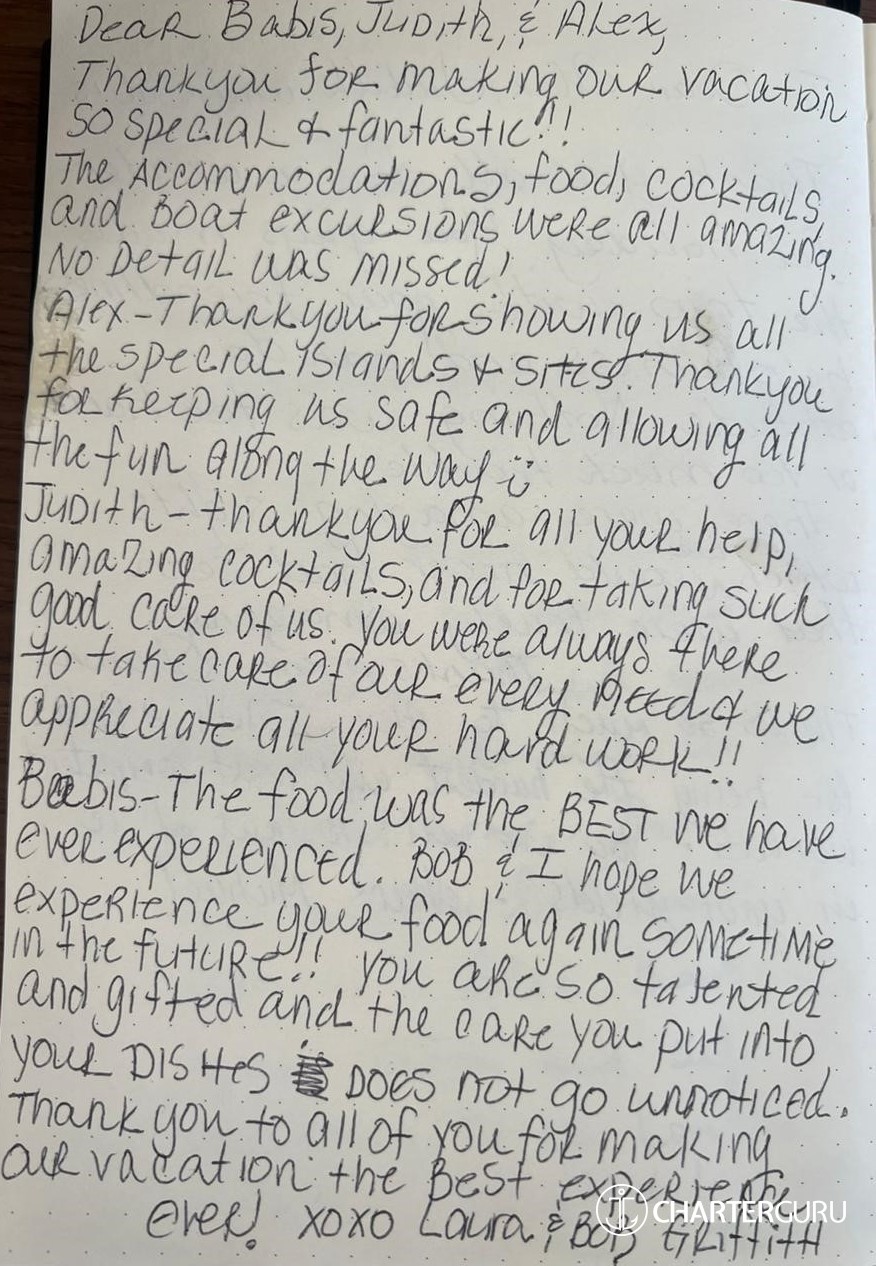 Dear Babis, Judith, & Alex,
Thankyou for making our vacation
so special & fantastic!!!
The Accommodations, food, cocktails
and Boat excursions were all amazing.
No Detail was missed!
Alex - Thankyou for showing us all
the special islands & sites. Thankyou
for keeping us safe and allowing all
the fun along the way
Judith - thankyou for all your help,
amazing cocktails, and for taking such
good care of us. You were always there
to take care of our every need & we
appreciate all your hard work!!
Babis - The food was the BEST we have
ever experienced. Bob & I hope we
experience your food again sometime
in the future!! You are so talented
and gifted and the care you put into
your DISHES Does not go unnoticed.
Thank you to all of you for making
our vacation the Best experience
Ever! xoxo Laura & Bob Griffith
CHARTERGURU